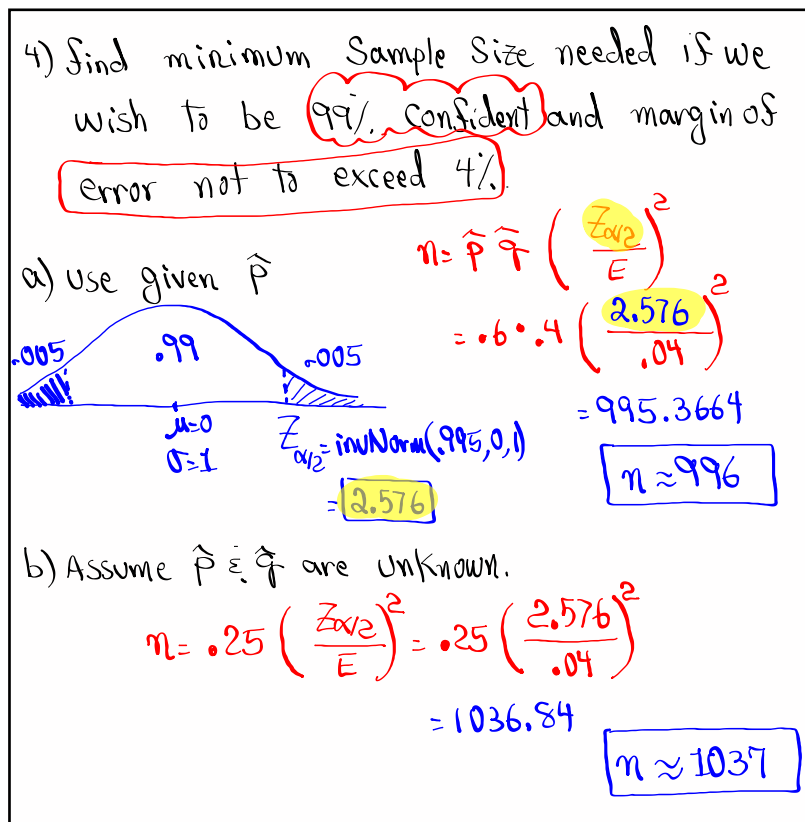 4) find minimum Sample Size needed if we
wish to be 99% confident and margin of
error not to exceed 4%.
n = p̂ q̂ ( Zα/2 / E )²
a) use given p̂
= .6 • .4 ( 2.576 / .04 )²
.005 .99 .005
= 995.3664
μ=0
σ=1
Zα/2 = invNorm(.995,0,1)
n ≈ 996
= 2.576
b) Assume p̂ & q̂ are unknown.
n = .25 ( Zα/2 / E )² = .25 ( 2.576 / .04 )²
= 1036.84
n ≈ 1037